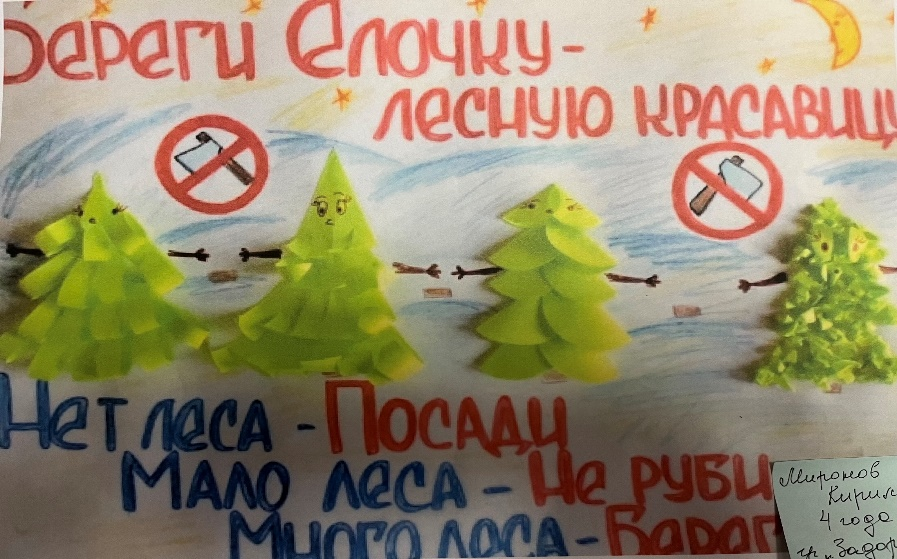 Береги Ёлочку-
лесную красавицу
Нет леса - Посади
Мало леса - Не руби
Много леса - Берег
Миронов
Кирил
4 года
гр. „Задор